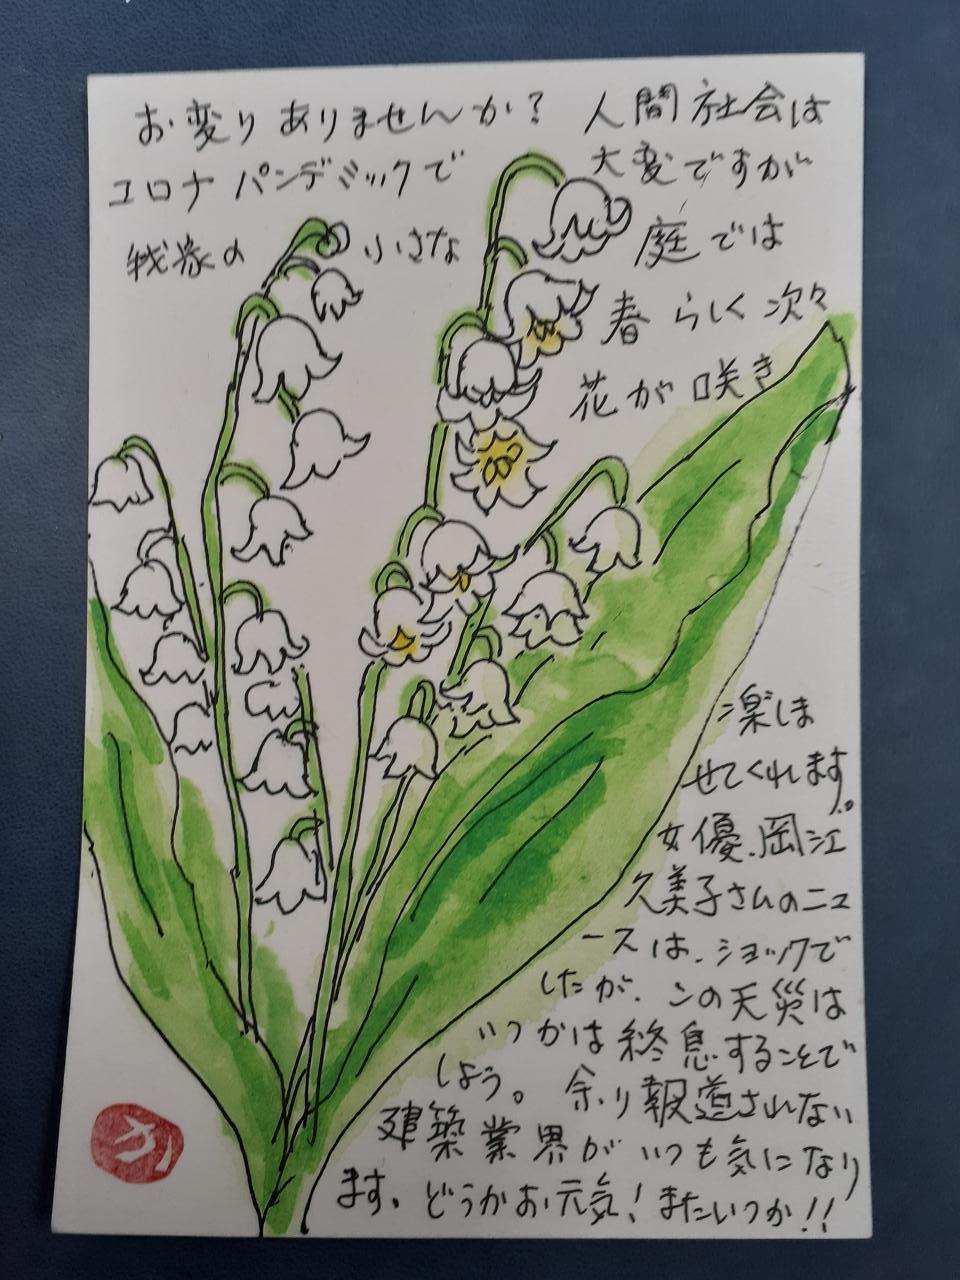 お変りありませんか? 人間社会は
コロナ パンデミックで 大変ですが
我家の 小さな 庭では
春らしく次々
花が咲き
楽しま
せてくれます。
女優.岡江
久美子さんのニュ
ースは.ショックで
したが.この天災は
いつかは終息することで
しょう。余り報道されない
建築業界がいつも気になり
ます.どうかお元気!またいつか!!